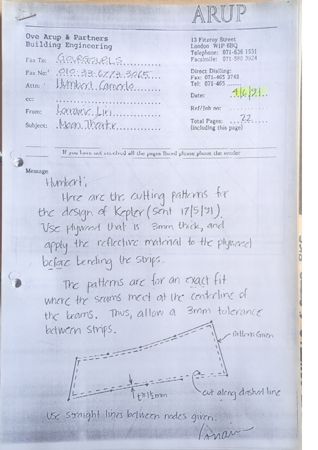 ARUP
Ove Arup & Partners
Building Engineering
13 Fitzroy Street
London W1P 6BQ
Telephone: 071-636 1531
Facsimile: 071-580 3924
Fax To:
Fax No:
Direct Dialling:
Fax: 071-465
Tel: 071-465
Attn: Humbert Camerlo
Date:
cc:
Ref/Job no:
From: Lorraine Lin
Subject: Moon Theatre
Total Pages: 22
(including this page)
If you have not received all the pages listed please phone the sender
Message
Humbert;
Here are the cutting patterns for
the design of Kepler (sent 17/5/91).
Use plywood that is 3mm thick, and
apply the reflective material to the plywood
before bending the strips.
The patterns are for an exact fit
where the seams meet at the centerline of
the beams. Thus, allow a 3mm tolerance
between strips.
Patterns Given
t=1½mm
cut along dashed line
Use straight lines between nodes given.